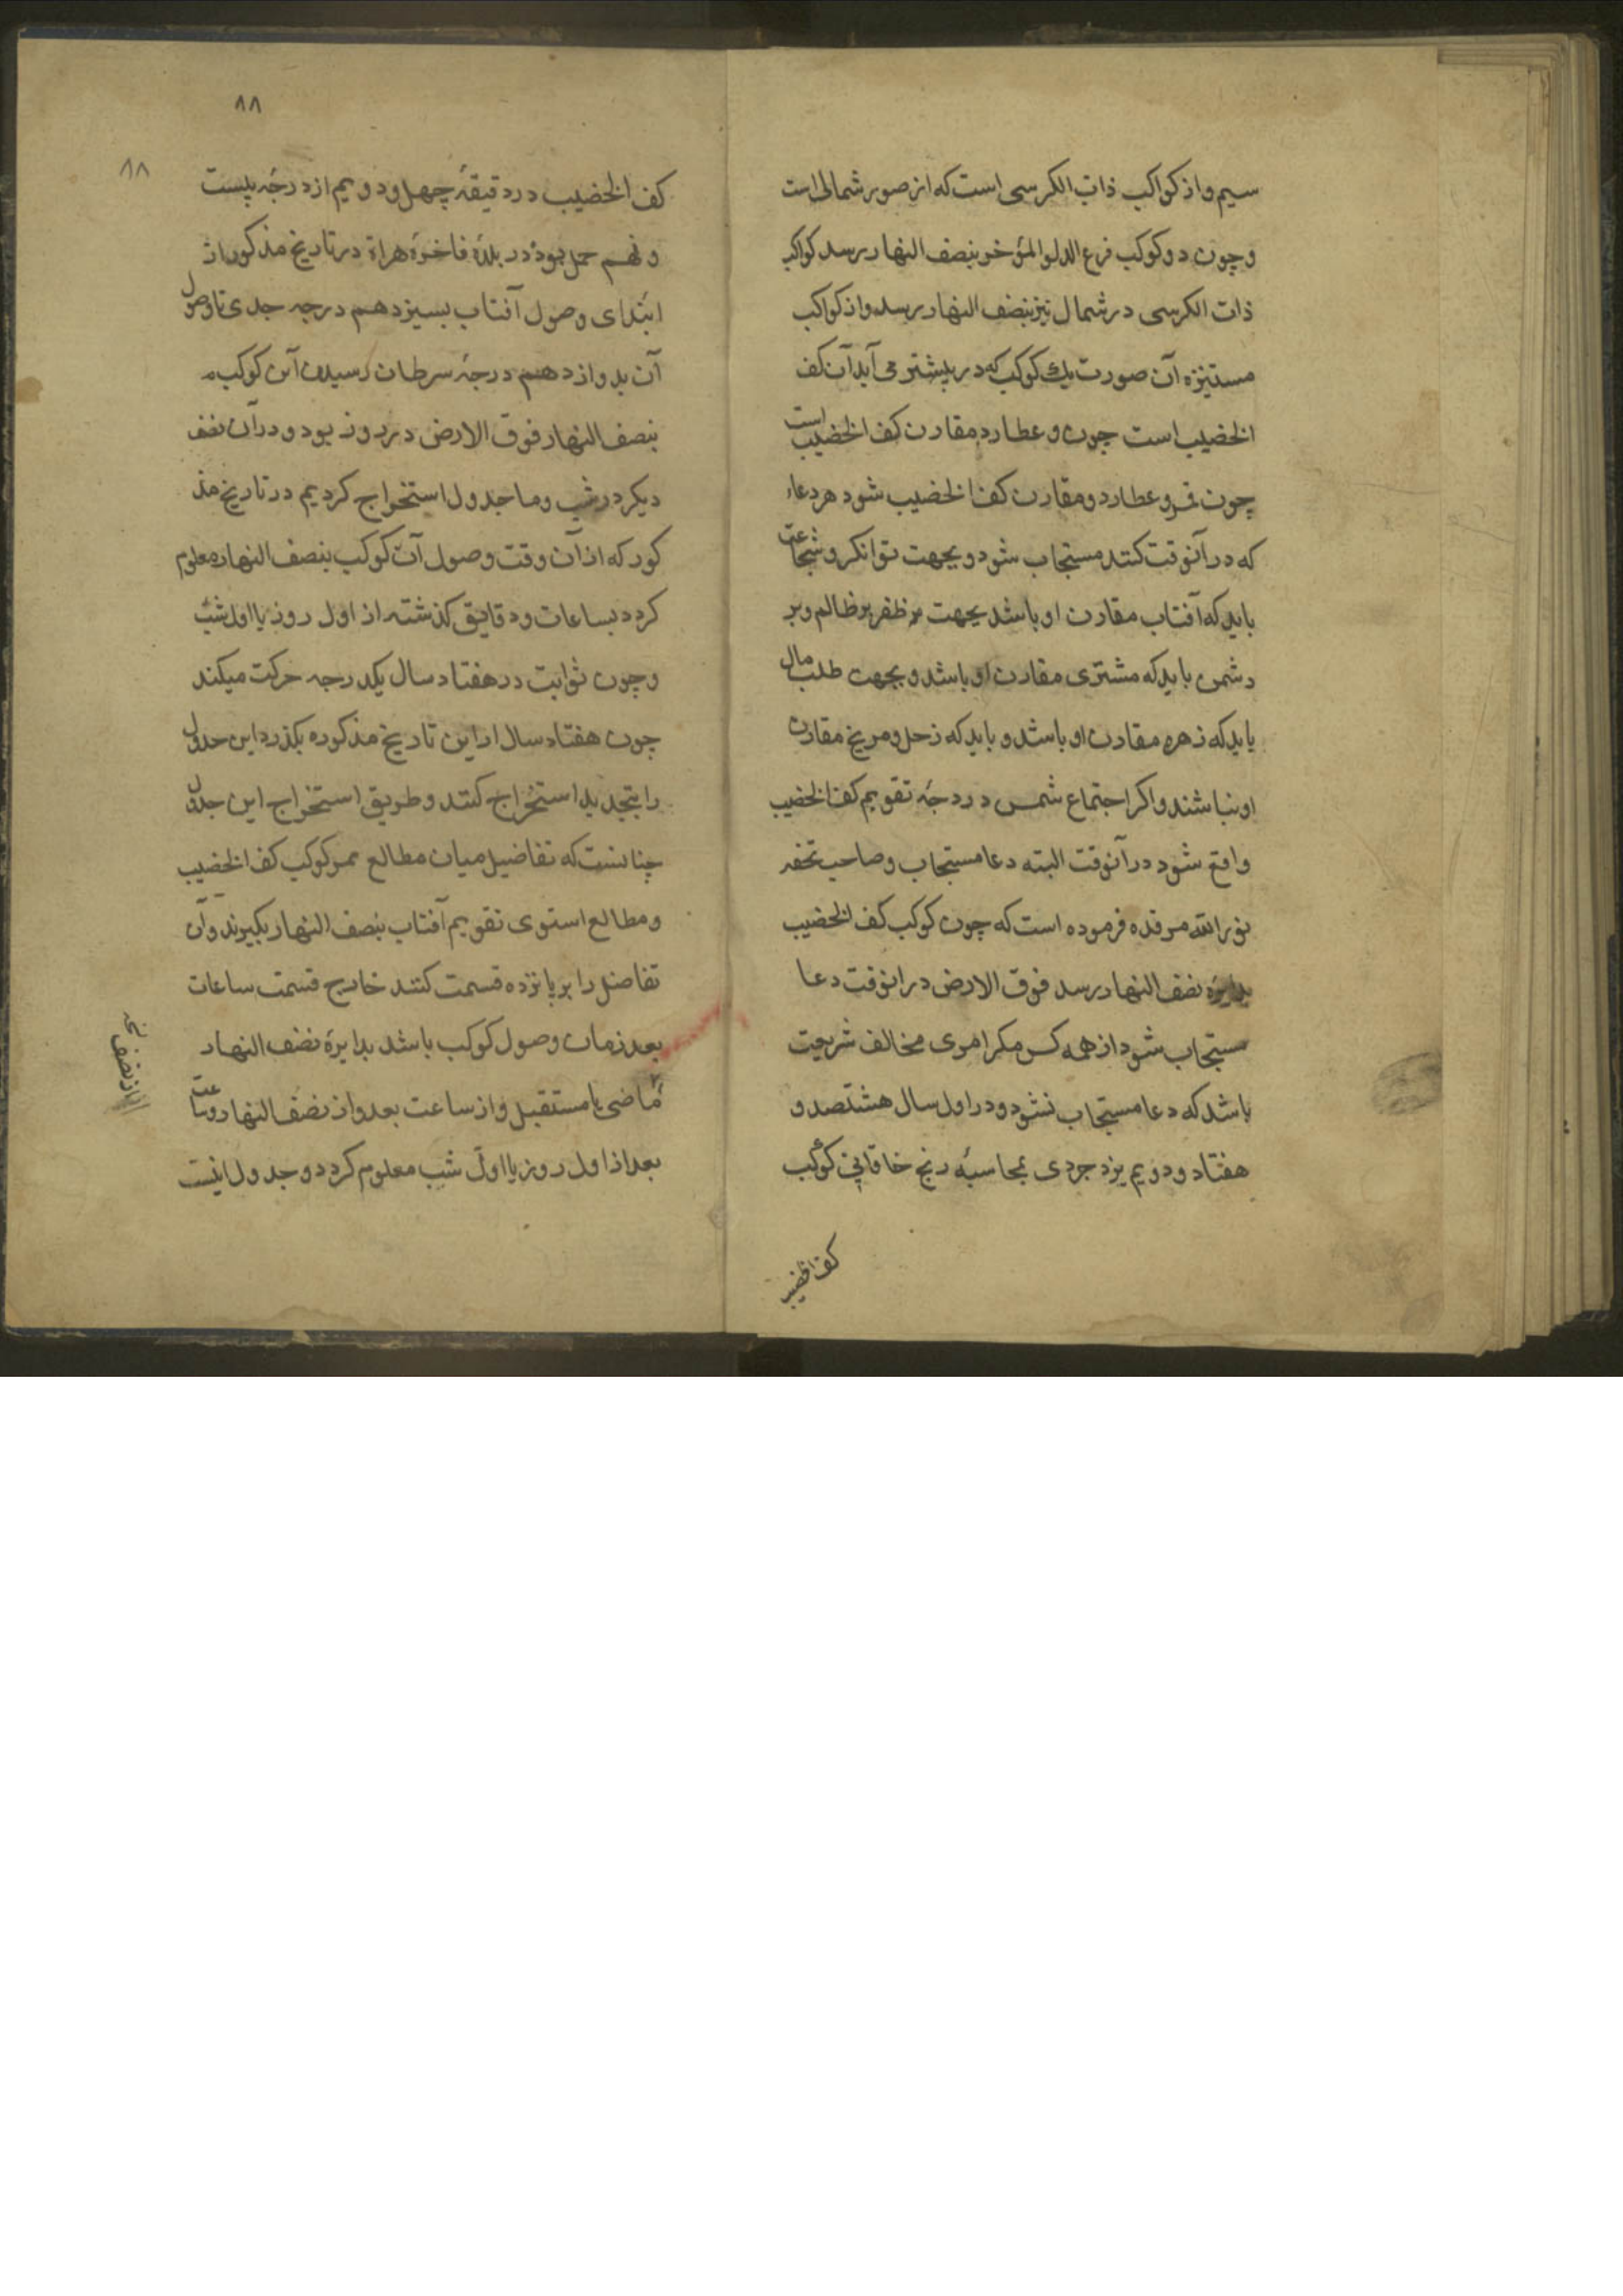 سیم واز کواکب ذات الکرسی است که از صور شمالی است
و چون دو کوکب فرع الدلو المؤخر بنصف النهار رسد کواکب
ذات الکرسی در شمال نیز بنصف النهار رسد واز کواکب
آن صورت یك کوکب که در پیشتر می آید آن کف
الخضیب است چون و عطارد مقارن کف الخضیب است
چون قمر و عطارد و مقارن کف الخضیب شود هر دعاء
که در آنوقت کنند مستجاب شود و بجهت توانکر و شجاعت
باید که آفتاب مقارن او باشد بجهت ظفر بر ظالم و بر
دشمن باید که مشتری مقارن او باشد و بجهت طلب مال
باید که زهره مقارن او باشد و باید که زحل و مریخ مقارن
او نباشند و اکر اجتماع شمس در درجهٔ تقویم کف الخضیب
واقع شود در آنوقت البته دعا مستجاب و صاحب تحفه
نور الله مرقده فرموده است که چون کوکب کف الخضیب
بدایره نصف النهار رسد فوق الارض در انوقت دعا
مستجاب شود از همه کس مکر امری مخالف شریعت
باشد که دعا مستجاب نشود و در اول سال هشتصد و
هفتاد و دویم یزدجردی بمحاسبهٔ زیج خاقانی کوکب
کف الخضیب
۸۸
۸۸
کف الخضیب در دقیقهٔ چهل و دویم از درجهٔ بیست
و نهم حمل بود در بلدهٔ فاخرهٔ هراة در تاریخ مذکور از
ابتدای وصول آفتاب بسیزدهم درجه جدی تا وصول
آن بدوازدهم درجهٔ سرطان رسیدن آن کوکب
بنصف النهار فوق الارض در روز بود و در آن نصف
دیکر در شب و ما جدول استخراج کردیم در تاریخ مذ
کور که از آن وقت وصول آن کوکب بنصف النهار معلوم
کردد بساعات و دقایق کذشته از اول روز یا اول شب
و چون ثوابت در هفتاد سال یکدرجه حرکت میکند
چون هفتاد سال از این تاریخ مذکوره بکذرد این جدول
را بتجدید استخراج کنند و طریق استخراج این جدول
چنانست که تفاضل میان مطالع ممر کوکب کف الخضیب
و مطالع استوی تقویم آفتاب بنصف النهار بکیرند و آن
تفاضل را بر پانزده قسمت کنند خارج قسمت ساعات
بعد زمان وصول کوکب باشد بدایرهٔ نصف النهار
ماضی یا مستقبل و از ساعت بعد و از نصف النهار و ساعت
از نصف
بعد از اول روز یا اول شب معلوم کردد و جدول اینست